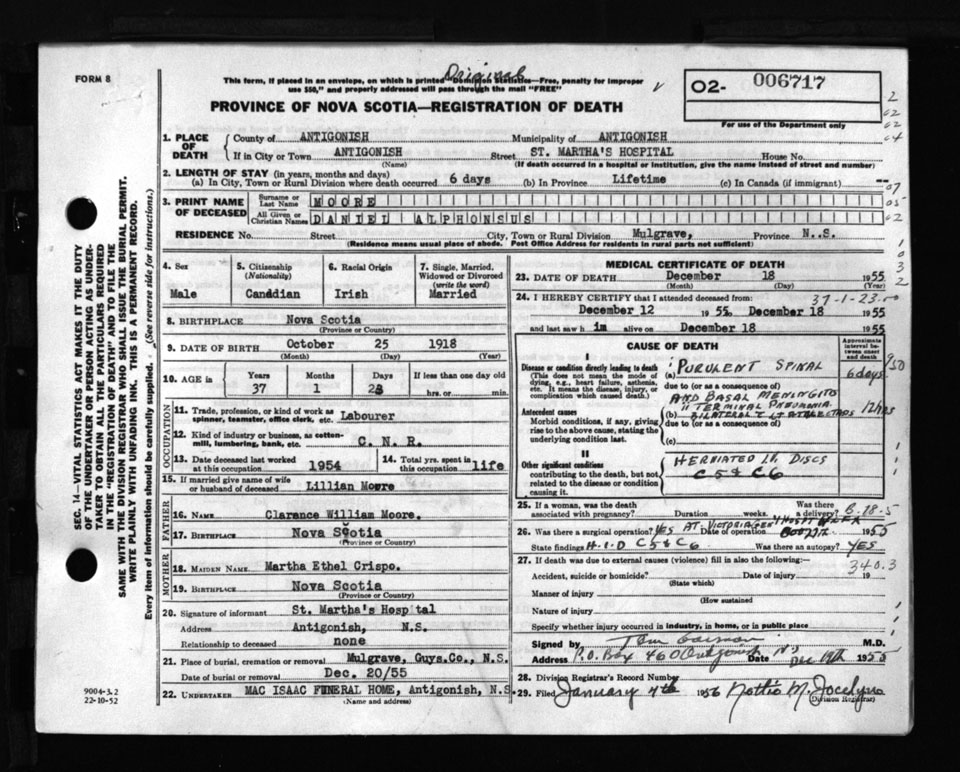 FORM 8
Original
This form, if placed in an envelope, on which is printed "Dominion Statistics—Free, penalty for improper
use $50," and properly addressed will pass through the mail "FREE"
PROVINCE OF NOVA SCOTIA—REGISTRATION OF DEATH
O2- 006717
For use of the Department only
2
02
02
04
1. PLACE OF DEATH
County of ANTIGONISH Municipality of ANTIGONISH
If in City or Town ANTIGONISH Street ST. MARTHA'S HOSPITAL House No.
(Name) (If death occurred in a hospital or institution, give the name instead of street and number)
2. LENGTH OF STAY (in years, months and days)
(a) In City, Town or Rural Division where death occurred 6 days (b) In Province Lifetime (c) In Canada (if immigrant) --
07
05
02
3. PRINT NAME OF DECEASED
Surname or Last Name MOORE
All Given or Christian Names DANIEL ALPHONSUS
RESIDENCE No. Street City, Town or Rural Division Mulgrave, Province N..S.
(Residence means usual place of abode. Post Office Address for residents in rural parts not sufficient)
4. Sex
Male
5. Citizenship (Nationality)
Canadian
6. Racial Origin
Irish
7. Single, Married, Widowed or Divorced (write the word)
Married
8. BIRTHPLACE Nova Scotia
(Province or Country)
9. DATE OF BIRTH October 25 1918
(Month) (Day) (Year)
10. AGE in
Years Months Days If less than one day old
37 1 23 hrs. or min.
OCCUPATION
11. Trade, profession, or kind of work as spinner, teamster, office clerk, etc. Labourer
12. Kind of industry or business, as cotton-mill, lumbering, bank, etc. C. N. R.
13. Date deceased last worked at this occupation 1954
14. Total yrs. spent in this occupation life
15. If married give name of wife or husband of deceased Lillian Moore
FATHER
16. Name Clarance William Moore.
17. Birthplace Nova Scotia
(Province or Country)
MOTHER
18. Maiden Name Martha Ethel Crispo.
19. Birthplace Nova Scotia
(Province or Country)
20. Signature of informant St. Martha's Hospital
Address Antigonish, N.S.
Relationship to deceased none
21. Place of burial, cremation or removal Mulgrave, Guys.Co., N.S.
Date of burial or removal Dec. 20/55
22. Undertaker MAC ISAAC FUNERAL HOME, Antigonish, N.S.
(Name and address)
MEDICAL CERTIFICATE OF DEATH
23. DATE OF DEATH December 18 1955
(Month) (Day) (Year)
24. I HEREBY CERTIFY that I attended deceased from: 37-1-23
December 12 1955 December 18 1955
and last saw h im alive on December 18 1955
CAUSE OF DEATH
Approximate interval between onset and death
I
Disease or condition directly leading to death
(This does not mean the mode of dying, e.g., heart failure, asthenia, etc. It means the disease, injury, or complication which caused death.)
(a) PURULENT SPINAL 6 days
due to (or as a consequence of)
AND BASAL MENINGITIS
Antecedent causes
Morbid conditions, if any, giving rise to the above cause, stating the underlying condition last.
(b) TERMINAL PNEUMONIA
BILATERAL 12 hrs
due to (or as a consequence of)
(c)
II
Other significant conditions
contributing to the death, but not related to the disease or condition causing it.
HERNIATED I.V. DISCS
C5 & C6
25. If a woman, was the death associated with pregnancy? Duration weeks. Was there a delivery?
26. Was there a surgical operation? YES AT VICTORIA GEN HOSP Date of operation 1955
State findings H.I.D C5 & C6 Was there an autopsy? YES
340.3
27. If death was due to external causes (violence) fill in also the following:—
Accident, suicide or homicide? Date of injury 19
(State which)
Manner of injury
(How sustained
Nature of injury
Specify whether injury occurred in industry, in home, or in public place
Signed by M.D.
Address P.O. Box 460 Antigonish NS Date Dec 19th 1955
28. Division Registrar's Record Number
29. Filed January 7th 1956
(Division Registrar)
SEC. 14—VITAL STATISTICS ACT MAKES IT THE DUTY
OF THE UNDERTAKER OR PERSON ACTING AS UNDER-
TAKER TO OBTAIN ALL THE PARTICULARS REQUIRED
IN THE "REGISTRATION OF DEATH" AND TO FILE THE
SAME WITH THE DIVISION REGISTRAR WHO SHALL ISSUE THE BURIAL PERMIT.
WRITE PLAINLY WITH UNFADING INK. THIS IS A PERMANENT RECORD.
Every item of information should be carefully supplied. (See reverse side for instructions.)
9004-3.2
22-10-52